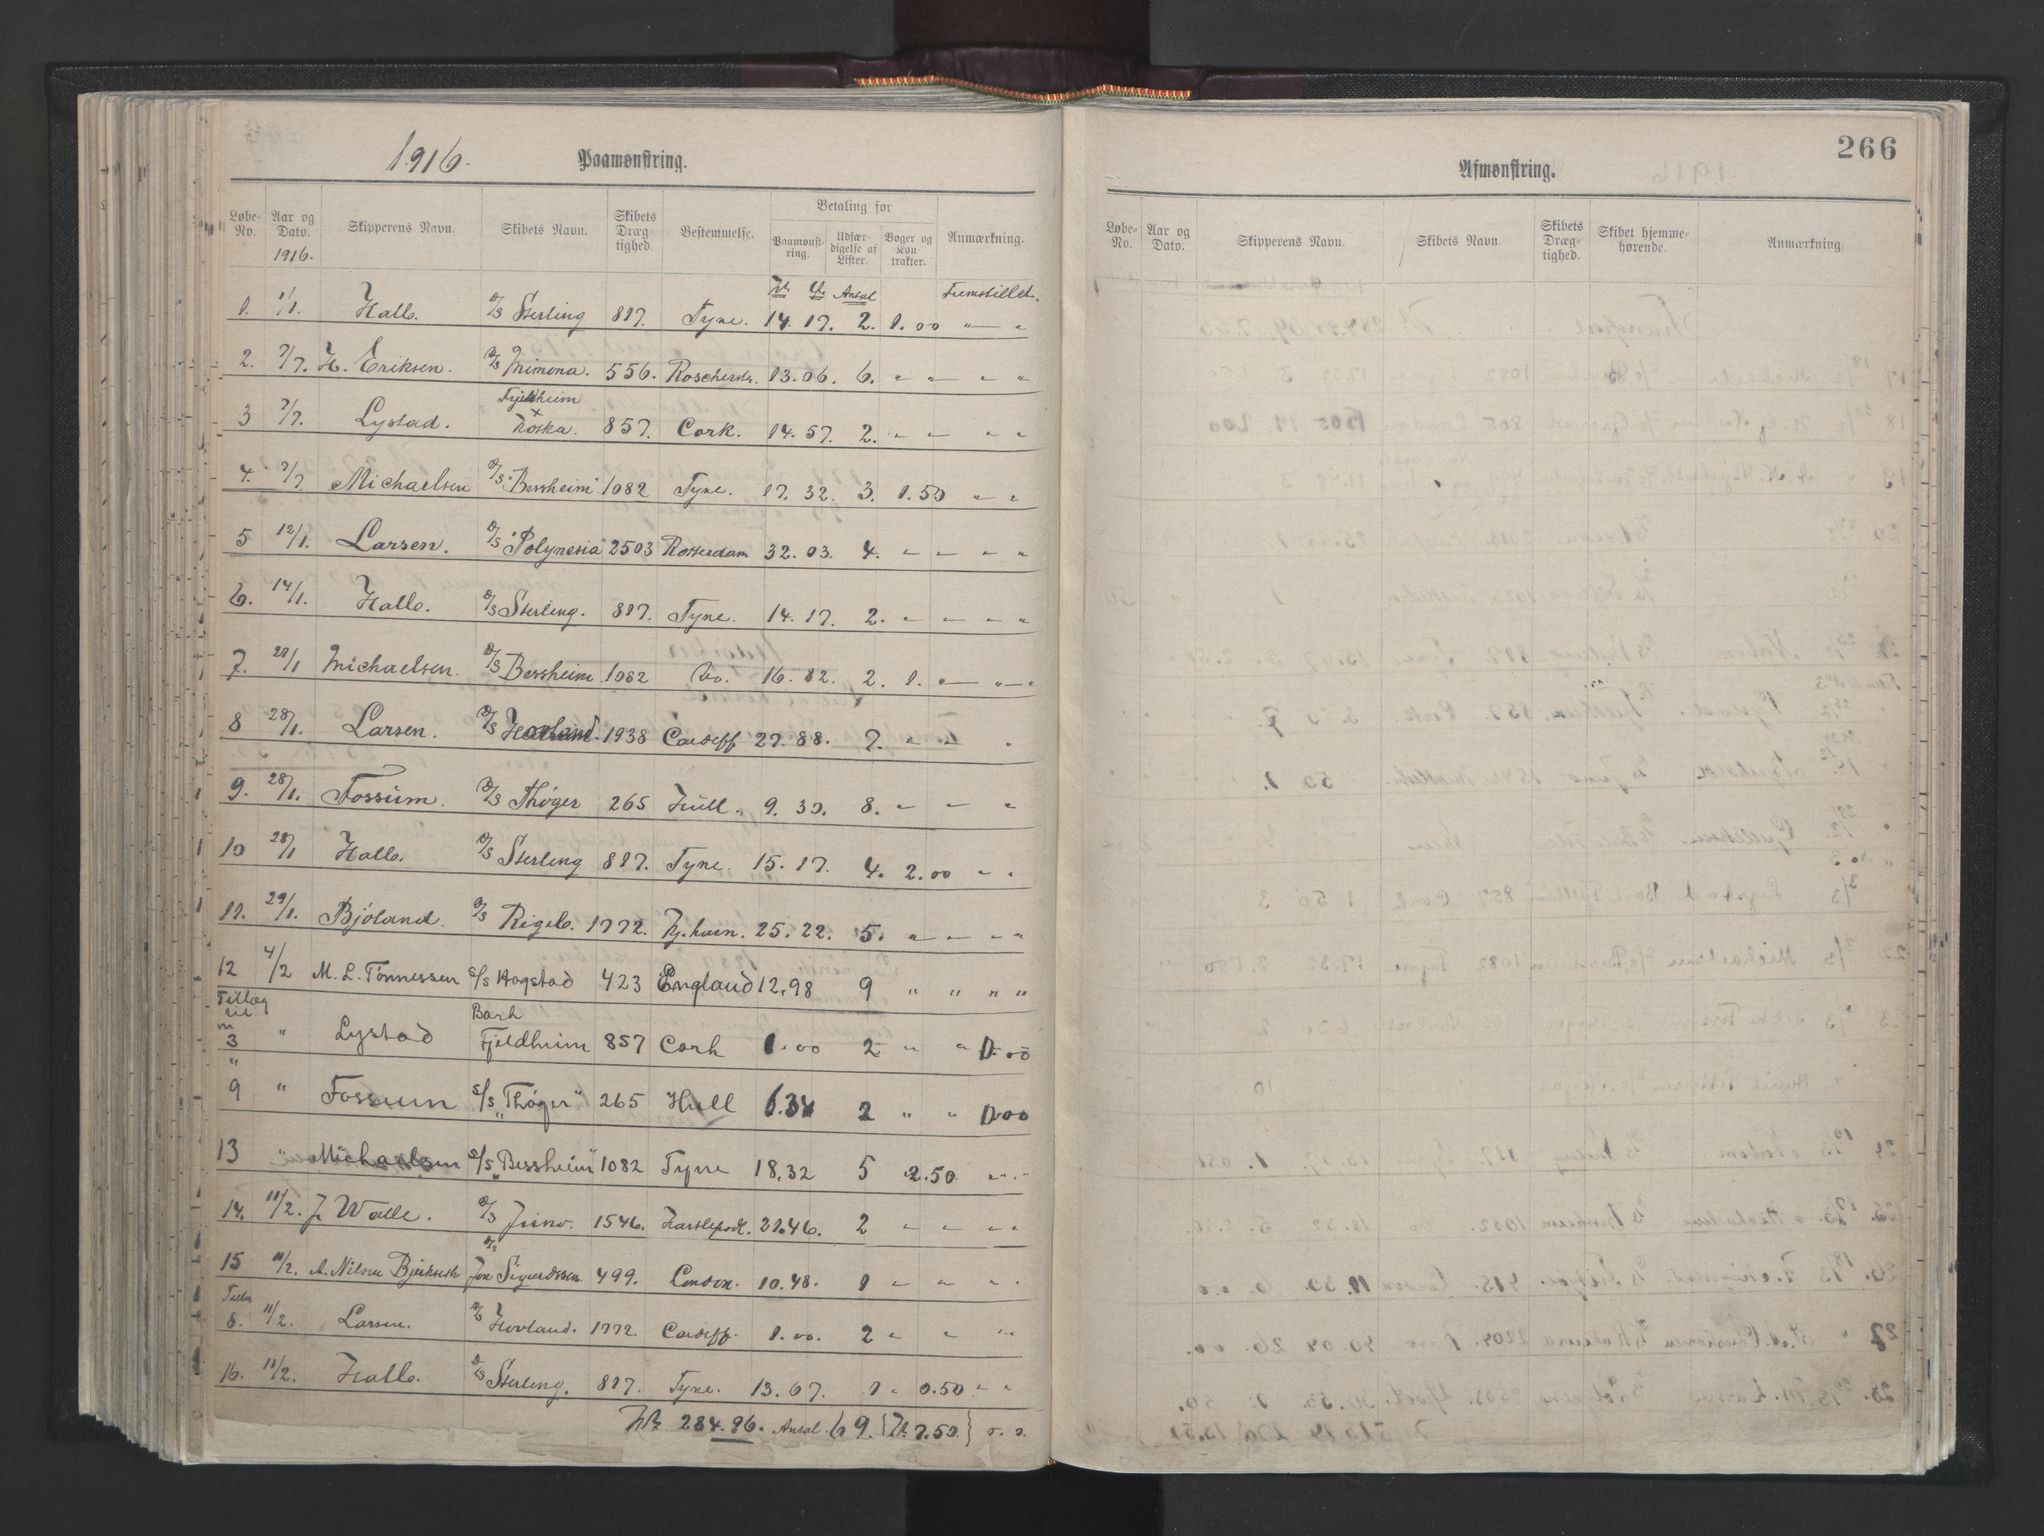 1916. Paamønstring.
Løbe-No. Aar og Dato. 1916. Skipperens Navn. Skibets Navn. Skibets Dræg-tighed. Bestemmelse. Betaling for Paamønst-ring. Udfær-digelse af Lister. Bøger og Kon-trakter. Anmærkning.
Antal
1. 1/1. Halb. D/S Sterling 817. Tyne. 14. 17. 2. 1.00 " "
2. 7/1. H. Eriksen. D/S Mimona. 556. 13.06. 6. " " " "
Fjeldheim
3 7/1. Lystad. 857. Cork. 14. 57. 2. " " " "
4. 7/1. Michaelsen D/S "Bessheim" 1082 Tyne. 17. 32. 3. 1.50 " "
5 12/1. Larsen. D/S "Polynesia" 2503 Rotterdam 32. 03. 4. " " " "
6. 14/1. Halb. D/S Sterling. 817. Tyne. 14. 17. 2. " " " "
7. 21/1 Michaelsen. D/S Bessheim 1082 Do. 16. 82. 2. 1. " " "
8 28/1. Larsen. D/S 1938 Cardiff 27. 88. 7. " " "
9. 28/1. Fossum. D/S Thøger 265 Hull. 9. 30. 8. " " "
10 28/1 Halb. D/S Sterling 817. Tyne. 15. 17. 4. 2.00 " "
11. 29/1. Bjøland. D/S Rigel. 1772. Kj.havn. 25. 22. 5. " " " "
12 4/2 M. L. Tønnessen S/S Hogstad 423 England 12,98 9 " " " "
Tillæg til
3 " Lystad Bark Fjeldheim 857 Cork 1.00 2 " " 1.00
"
9 " Fossum S/S "Thøger" 265 Hull 1.34 2 " " 1.00
13 " Michaelsen S/S "Bessheim" 1082 Tyne 18,32 5 2.50 " "
14. 11/2. J. Walle. D/S Juno. 1546. Hartlepool. 21.46. 2 " " " "
15 11/2. A. Nilsen D/S Jon Sigurdssen 499. London. 10.48. 1 " " " "
8. 11/2. Larsen. D/S Hovland. 1772. Cardiff. 1.00. 2 " " "
16. 11/2. Halb. D/S Sterling. 817. Tyne. 13.67. 1 " 0.50 " "
Kr 284.96. Antal 69. {Kr. 7.50.}
266
Afmønstring.
Løbe-No. Aar og Dato. Skipperens Navn. Skibets Navn. Skibets Dræg-tighed. Skibet hjemme-hørende. Anmærkning.